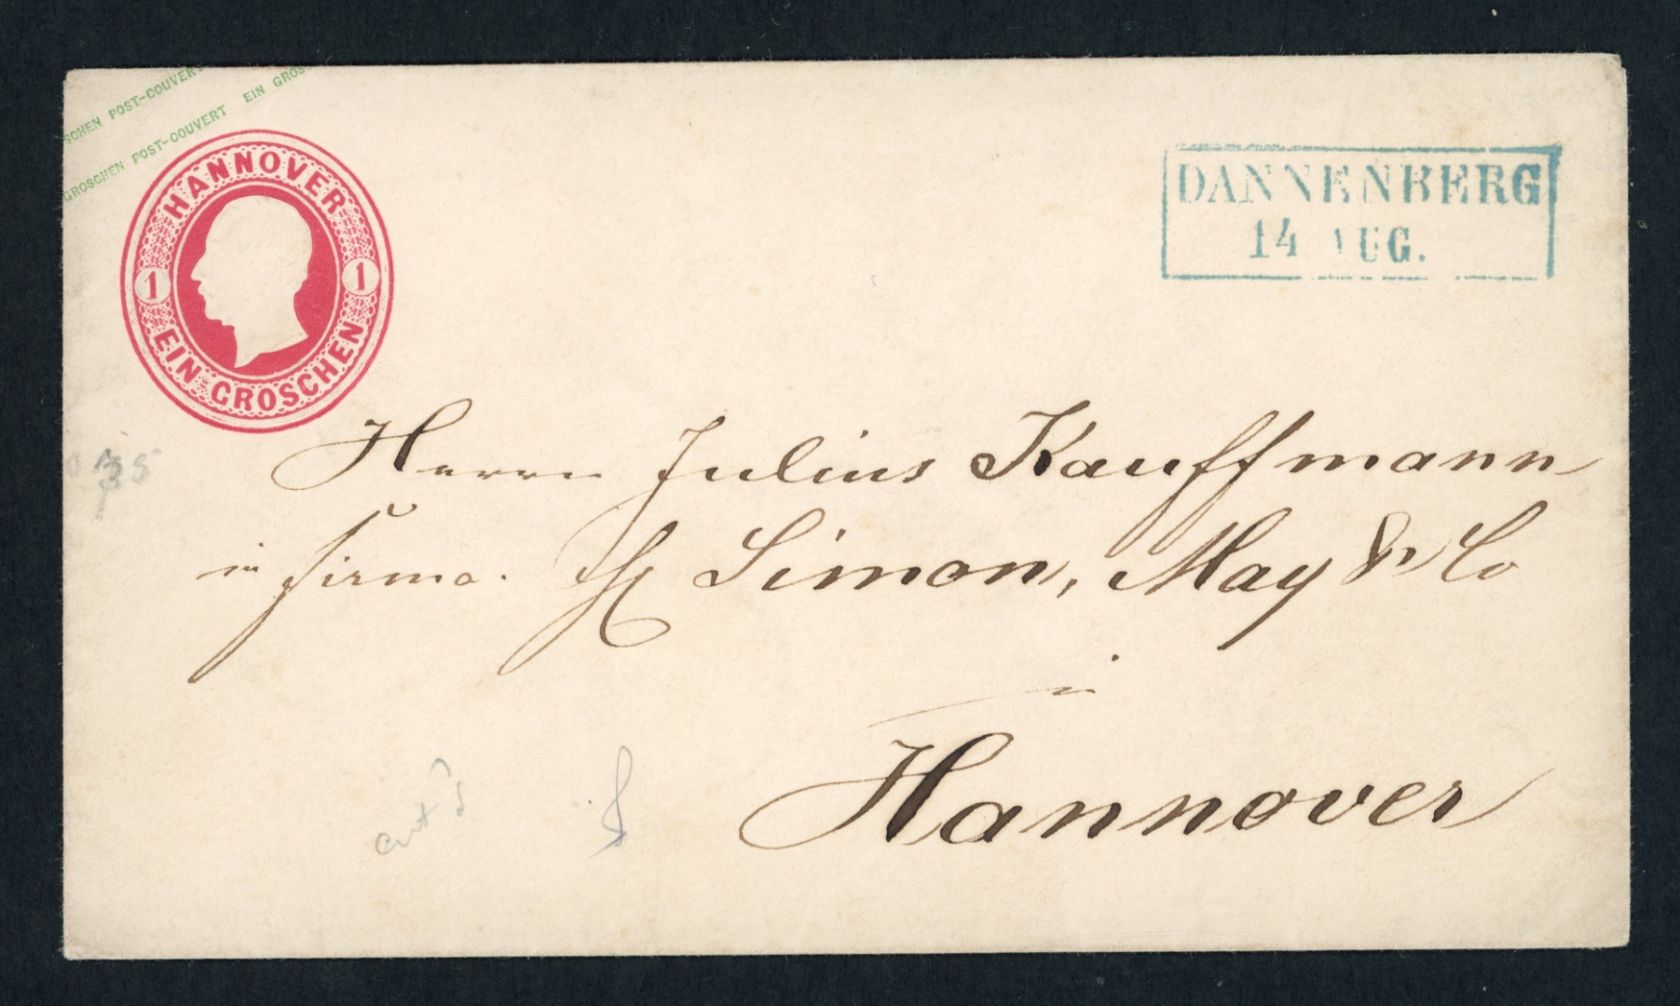 SCHEN POST-COUVERT EIN GROS
GROSCHEN POST-COUVERT
HANNOVER
1 1
EIN GROSCHEN
DANNENBERG
14 AUG.
Herrn Julius Kauffmann
in Firma. Simon, May & Co
in
Hannover